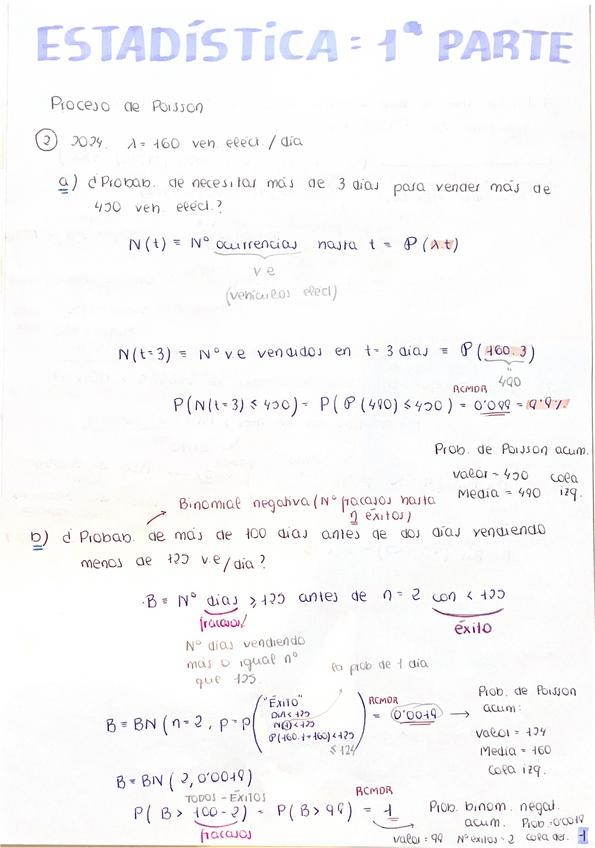 ESTADÍSTICA = 1ª PARTE
Proceso de Poisson
② 2024. λ = 160 ven. eléct. / día
a) ¿Probab. de necesitar más de 3 días para vender más de
450 veh. eléct.?
N(t) ≡ Nº ocurrencias hasta t = P(λt)
v e
(vehículos eléct)
N(t=3) ≡ Nº v.e vendidos en t=3 días ≡ P(160.3)
"
480
RCMDR
P(N(t=3) ≤ 450) = P(P(480) ≤ 450) =
Prob. de Poisson acum.
valor = 450 cola
Media = 480 izq.
Binomial negativa (Nº fracasos hasta
n éxitos)
b) ¿Probab. de más de 100 días antes de dos días vendiendo
menos de 125 v.e/día?
B = Nº días ≥ 125 antes de n = 2 con < 125
fracasos
éxito
Nº días vendiendo
más o igual nº
que 125.
la prob de 1 día
B ≡ BN (n = 2, p = P("ÉXITO"
Día < 125
N(1) < 125
P(160.1 = 160) < 125
≤ 124
RCMDR
) = 0'0019 →
Prob. de Poisson
acum:
valor = 124
Media = 160
cola izq.
B = BN (2, 0'0019)
TODOS - ÉXITOS
RCMDR
P(B > 100 - 2) = P(B > 98) = 1
fracasos
Prob. binom. negat.
acum. Prob = 0'0019
valor = 98 Nº éxitos = 2 cola der.
1